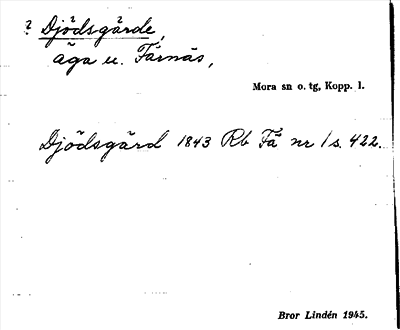 ? Djödsgårde,
äga u. Färnäs,
Mora sn o. tg, Kopp. l.
Djödsgård 1843 Rb Fä nr 1 s. 422.
Bror Lindén 1945.